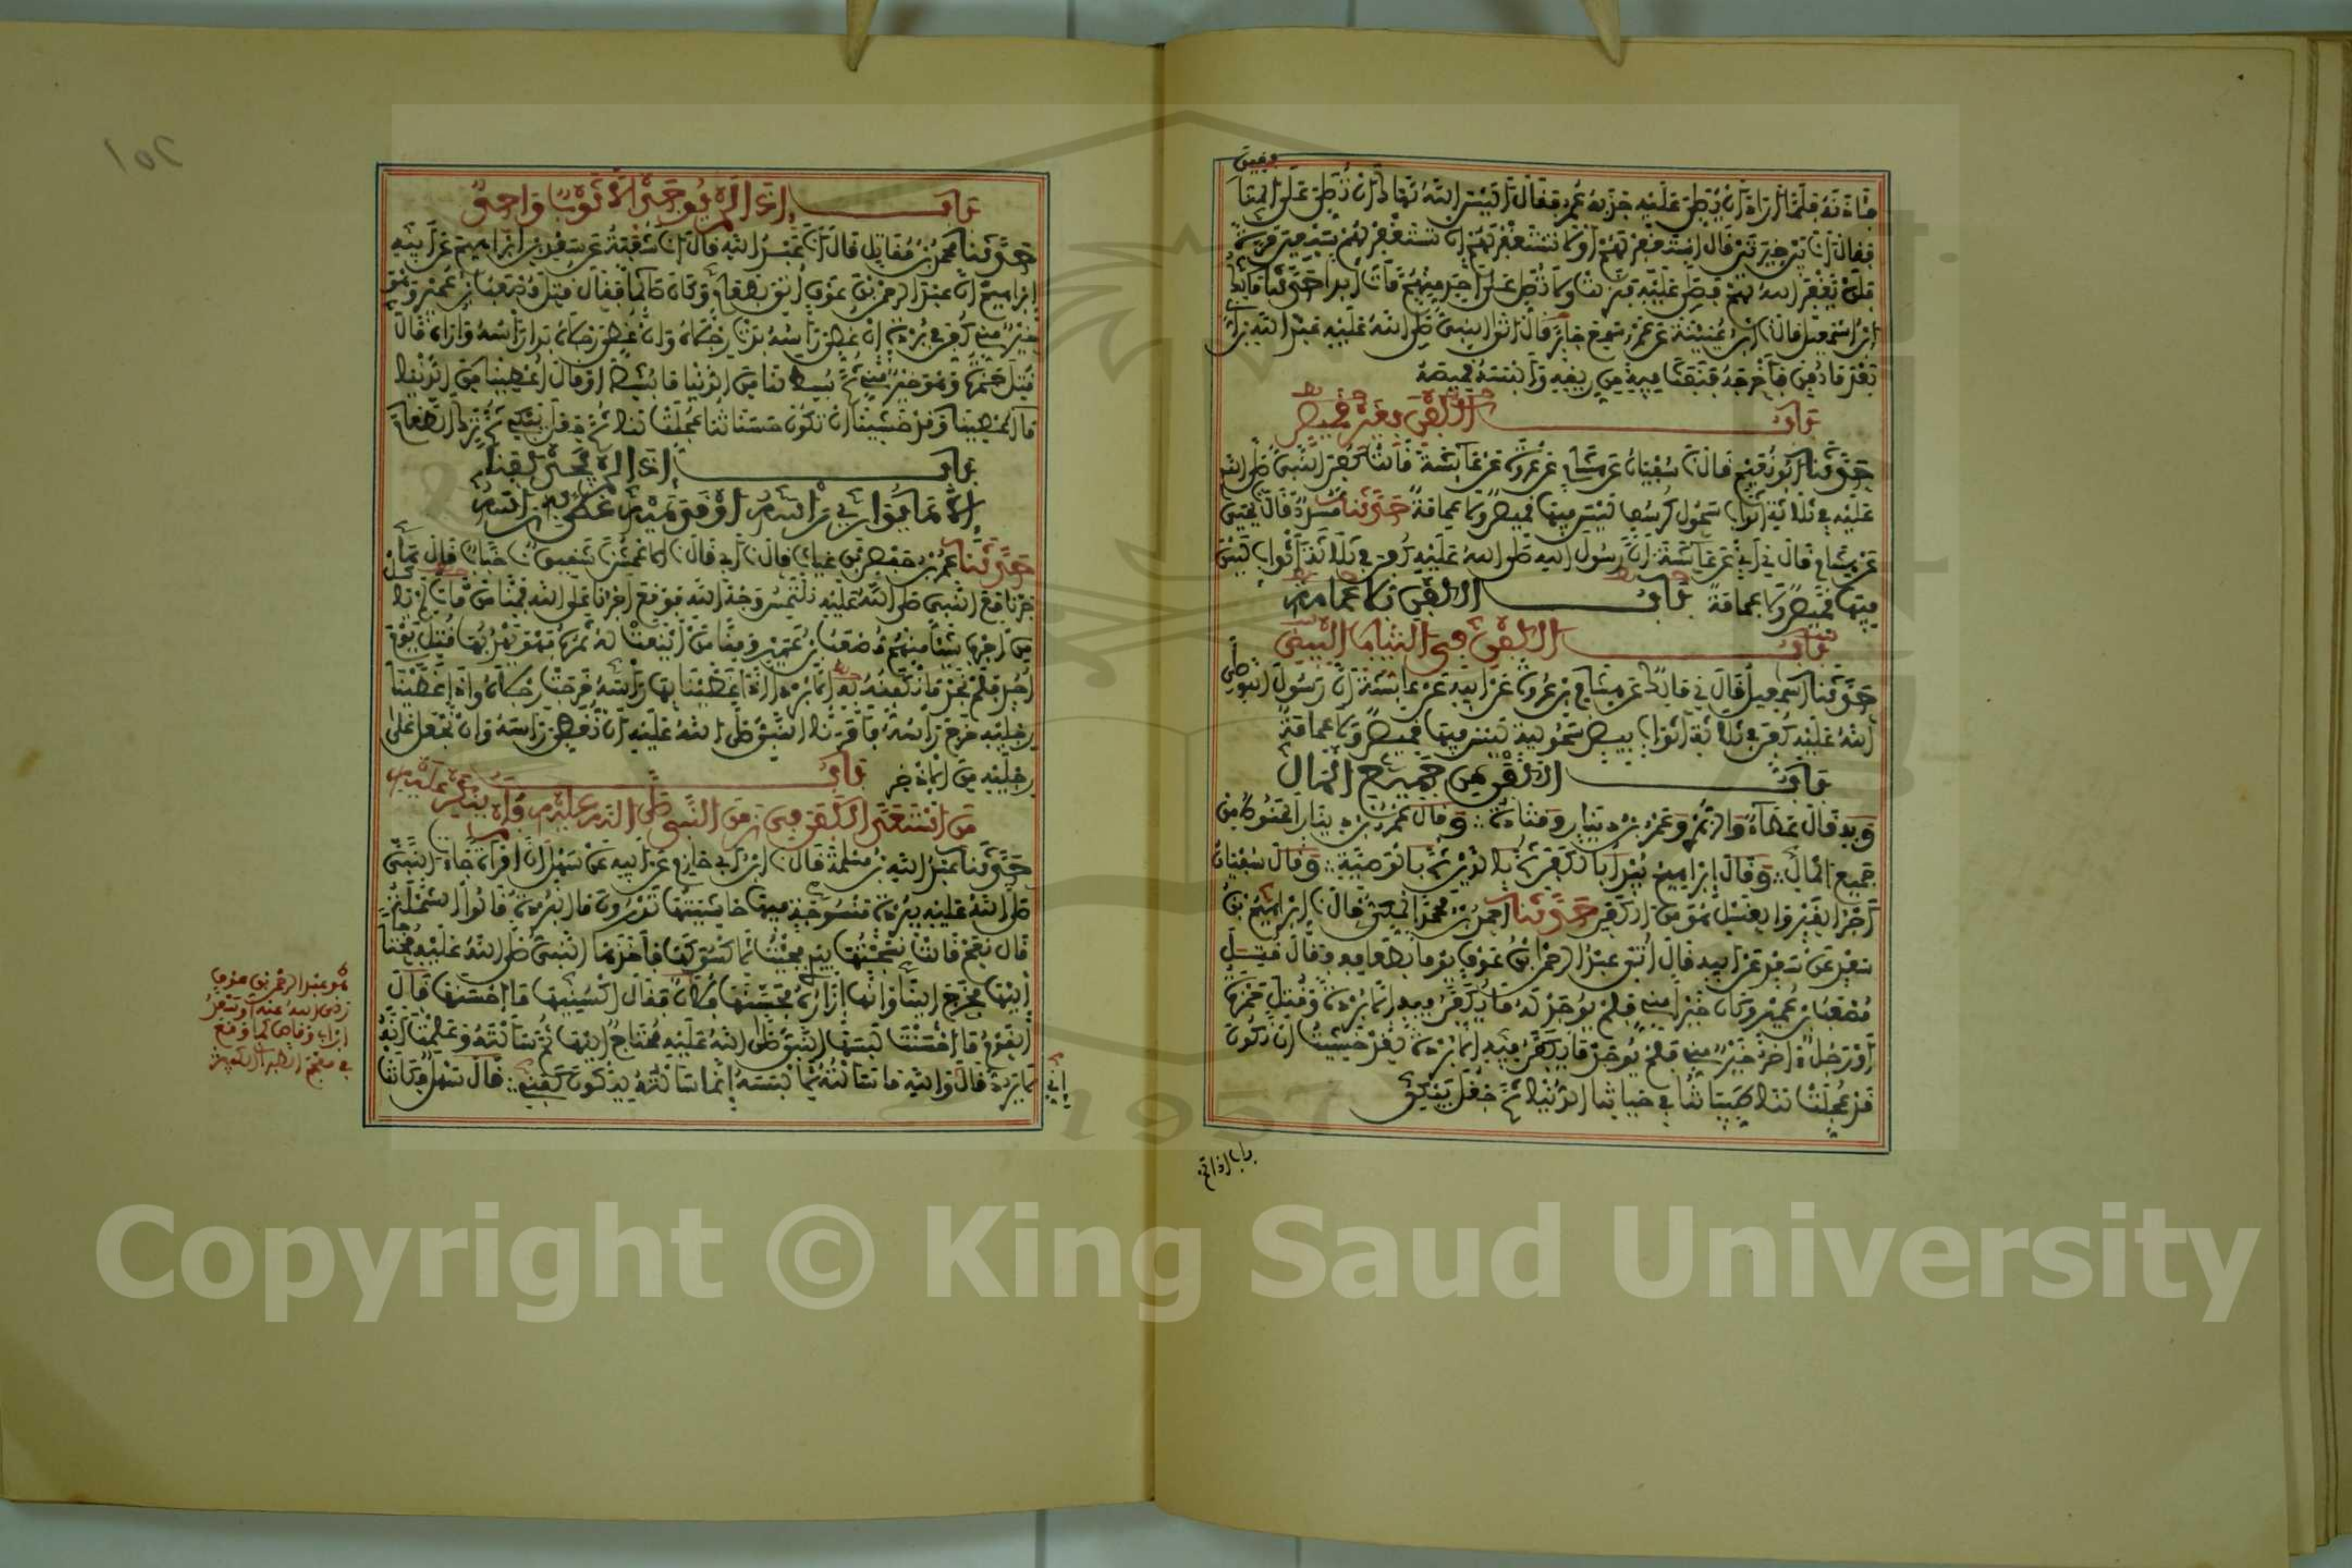 فآذنه فلما أراد أن يصلي عليه جذبه عمر فقال أليس الله نهاك أن تصلي على المنا
فقين
فقال أنا بين خيرتين قال استغفر لهم أو لا تستغفر لهم إن تستغفر لهم سبعين مرة
فلن يغفر الله لهم فصلى عليه فنزلت ولا تصل على أحد منهم مات أبدا حدثنا مالك
ابن اسمعيل قال نا ابن عيينة عن عمرو سمع جابرا قال أتى النبي صلى الله عليه عبد الله بن أبي
بعد ما دفن فأخرجه فنفث فيه من ريقه وألبسه قميصه
باب الكفن بغير قميص
حدثنا أبو نعيم قال نا سفيان عن هشام عن عروة عن عائشة قالت كفن النبي صلى الله
عليه في ثلاثة أثواب سحول كرسف ليس فيها قميص ولا عمامة حدثنا مسدد قال نا يحيى
عن هشام قال ني أبي عن عائشة أن رسول الله صلى الله عليه كفن في ثلاثة أثواب ليس
فيها قميص ولا عمامة باب الكفن بلا عمامة
باب الكفن في الثياب البيض
حدثنا اسمعيل قال ني مالك عن هشام بن عروة عن أبيه عن عائشة أن رسول الله صلى
الله عليه كفن في ثلاثة أثواب بيض سحولية ليس فيها قميص ولا عمامة
باب الكفن من جميع المال
وبه قال عطاء والزهري وعمرو بن دينار وقتادة وقال عمرو بن دينار الحنوط من
جميع المال وقال إبراهيم يبدأ بالكفن ثم بالدين ثم بالوصية وقال سفيان
أجر القبر والغسل هو من الكفن حدثنا أحمد بن محمد المكي قال نا إبراهيم بن
سعد عن سعد عن أبيه قال أتي عبد الرحمن بن عوف يوما بطعامه فقال قتل
مصعب بن عمير وكان خيرا مني فلم يوجد له ما يكفن فيه إلا بردة وقتل حمزة
أو رجل آخر خير مني فلم يوجد ما يكفن فيه إلا بردة لقد خشيت أن تكون
قد عجلت لنا طيباتنا في حياتنا الدنيا ثم جعل يبكي
باب إذا لم
باب إذا لم يوجد إلا ثوب واحد
حدثنا محمد بن مقاتل قال أنا عبد الله قال أنا شعبة عن سعد بن إبراهيم عن أبيه
إبراهيم أن عبد الرحمن بن عوف أتي بطعام وكان صائما فقال قتل مصعب بن عمير وهو
خير مني كفن في بردة إن غطي رأسه بدت رجلاه وإن غطي رجلاه بدا رأسه وأراه قال
قتل حمزة وهو خير مني ثم بسط لنا من الدنيا ما بسط أو قال أعطينا من الدنيا
ما أعطينا وقد خشينا أن تكون حسناتنا عجلت لنا ثم جعل يبكي ثم ترك الطعام
باب إذا لم يجد كفنا
إلا ما يواري رأسه أو قدميه غطي به رأسه
حدثنا عمر بن حفص بن غياث قال نا أبي قال نا الأعمش نا شقيق نا خباب قال هاجرنا
مع النبي صلى الله عليه نلتمس وجه الله فوقع أجرنا على الله فمنا من مات لم يأكل
من أجره شيئا منهم مصعب بن عمير ومنا من أينعت له ثمرته فهو يهدبها قتل يوم
أحد فلم نجد ما نكفنه به إلا بردة إذا غطينا بها رأسه خرجت رجلاه وإذا غطينا
رجليه خرج رأسه فأمرنا النبي صلى الله عليه أن نغطي رأسه وأن نجعل على
رجليه من الإذخر باب
من استعد الكفن في زمن النبي صلى الله عليه فلم ينكر عليه
حدثنا عبد الله بن مسلمة قال نا ابن أبي حازم عن أبيه عن سهل أن امرأة جاءت النبي
صلى الله عليه ببردة منسوجة فيها حاشيتها تدرون ما البردة قالوا الشملة
قال نعم قالت نسجتها بيدي فجئت لأكسوكها فأخذها النبي صلى الله عليه محتاجا
إليها فخرج إلينا وإنها إزاره فحسنها فلان فقال اكسنيها ما أحسنها قال
القوم ما أحسنت لبسها النبي صلى الله عليه محتاج إليها ثم سألته وعلمت أنه
لا يرد قال إني والله ما سألته لألبسه إنما سألته لتكون كفني قال سهل فكانت
هو عبد الرحمن بن عوف
رضي الله عنه أو سعد
بن أبي وقاص كما وقع
في معجم الطبراني الكبير
Copyright © King Saud University
1957